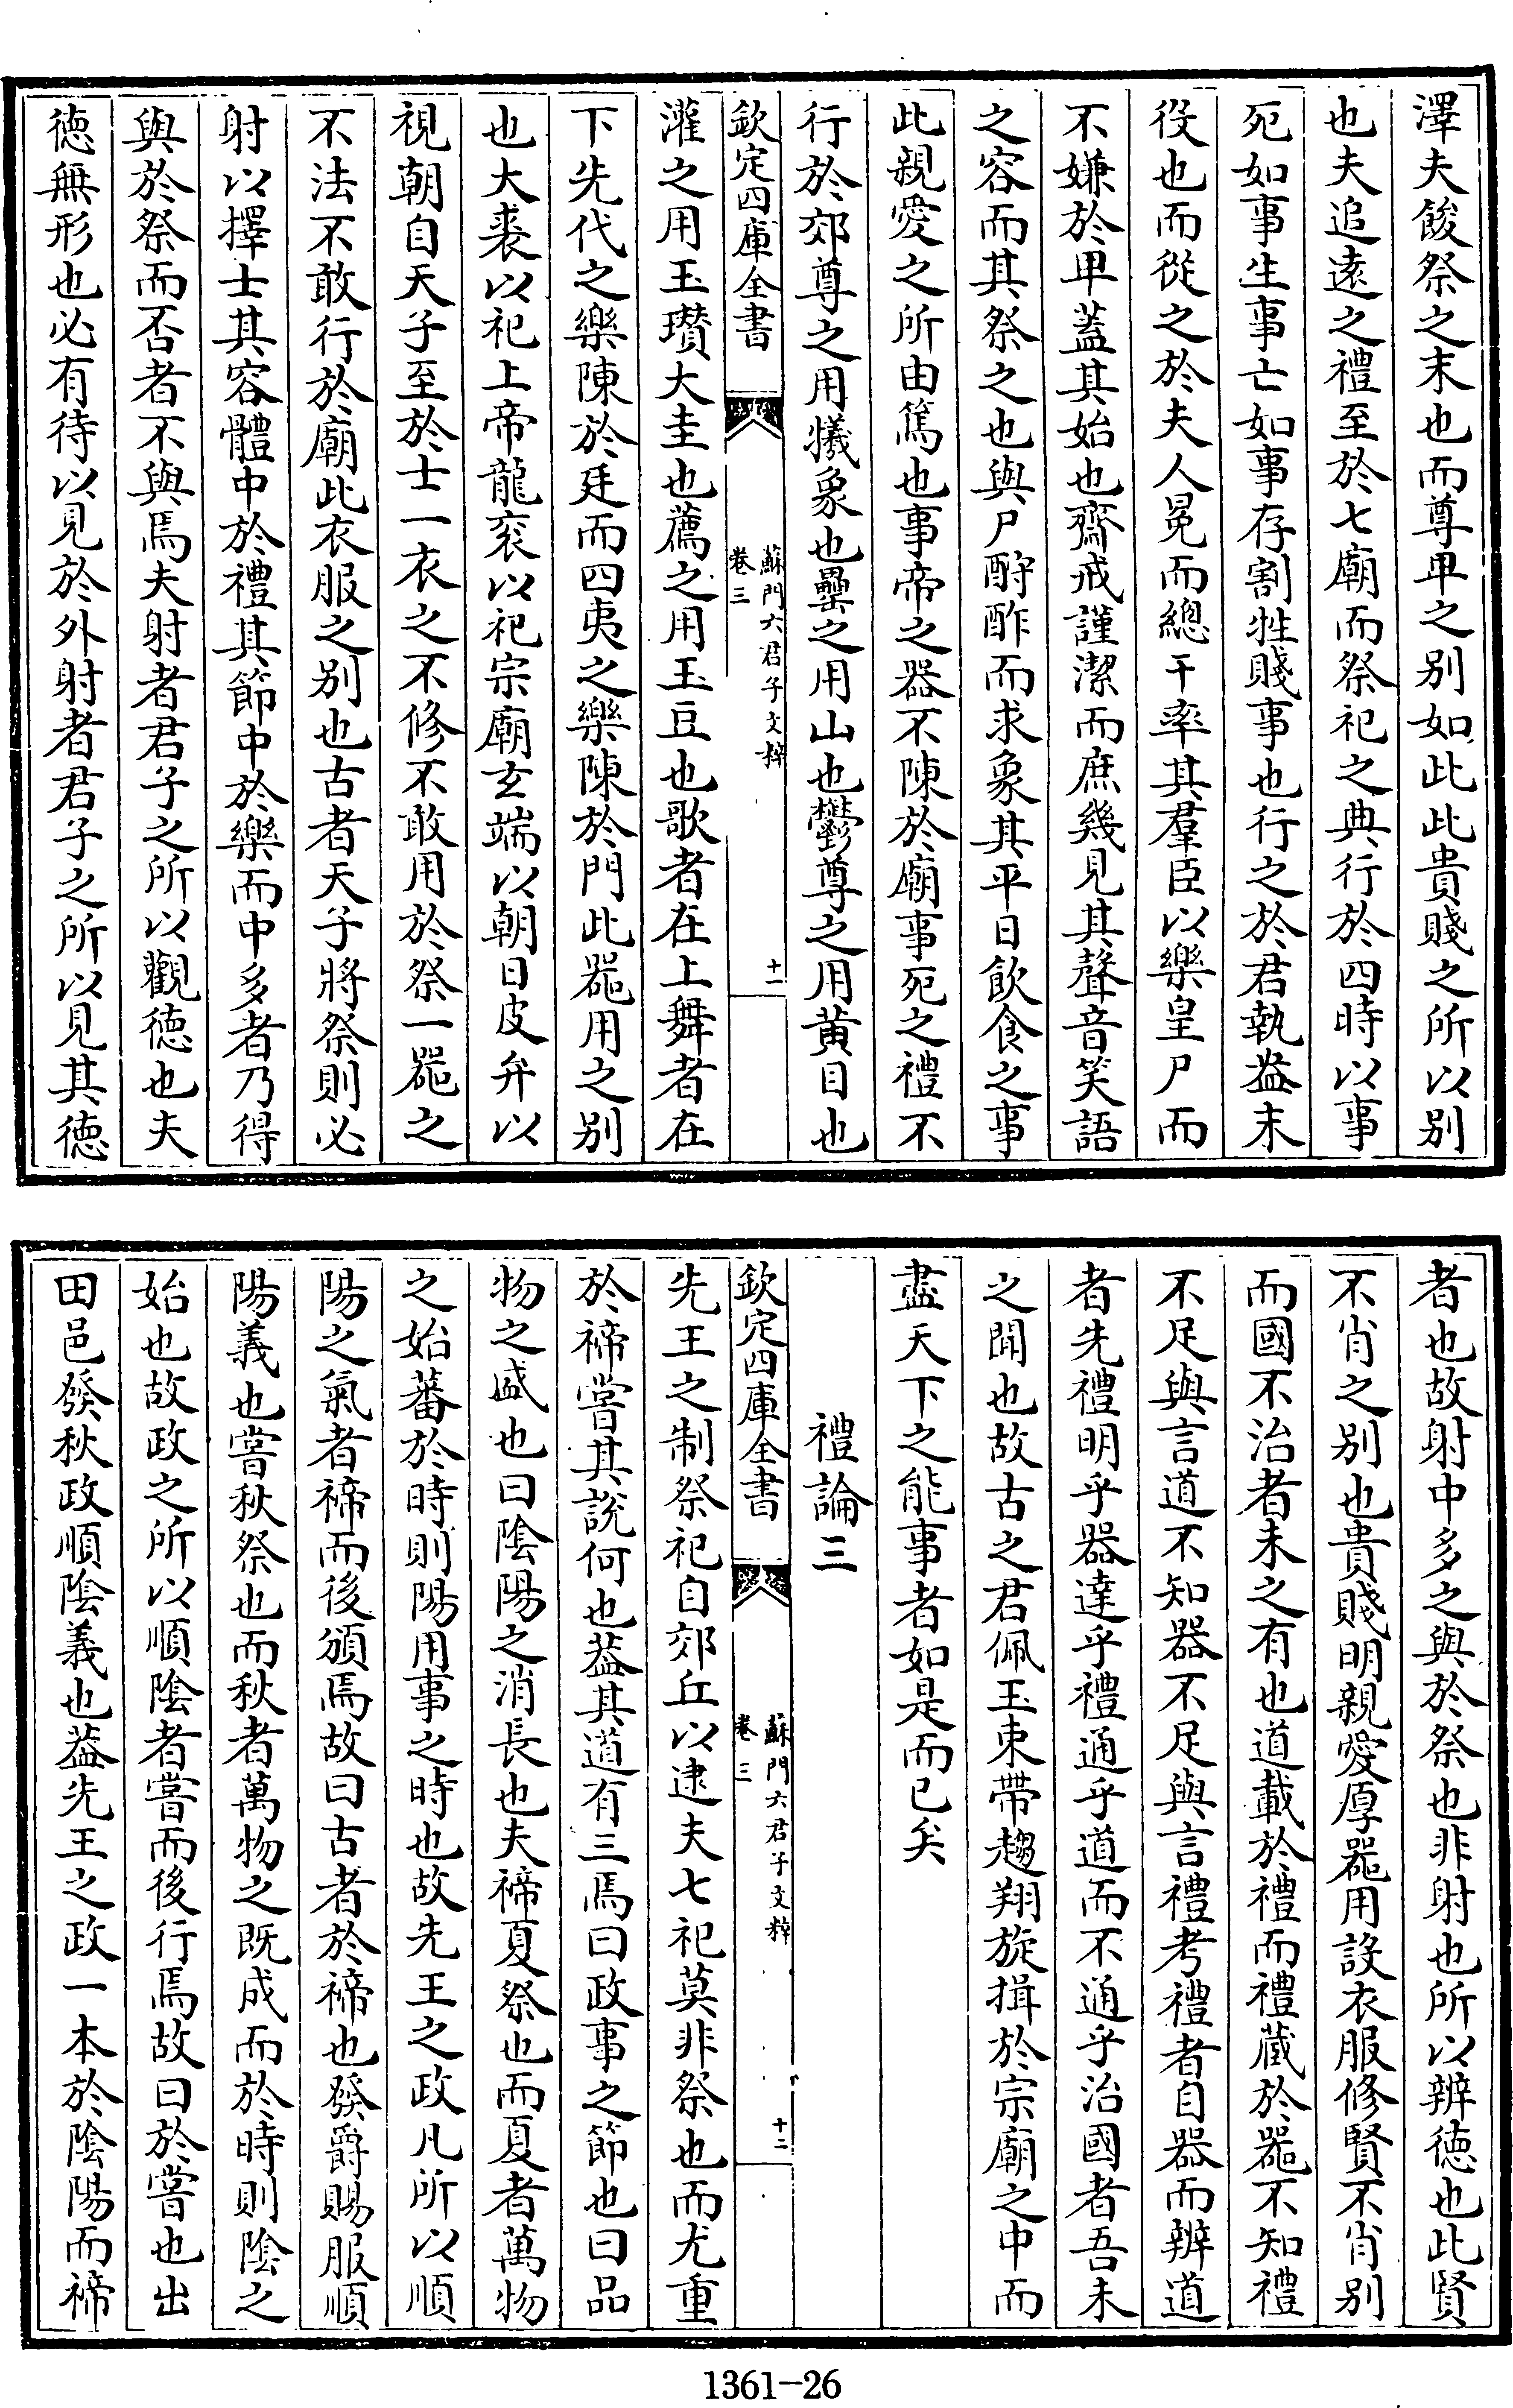 澤夫餕祭之末也而尊卑之别如此此貴賤之所以别
也夫追逺之禮至於七廟而祭祀之典行於四時以事
死如事生事亡如事存割牲賤事也行之於君執盎末
役也而從之於夫人冕而總干率其羣臣以樂皇尸而
不嫌於卑蓋其始也齋戒謹潔而庶幾見其聲音笑語
之容而其祭之也與尸酧酢而求象其平日飲食之事
此親愛之所由篤也事帝之器不陳於廟事死之禮不
行於郊尊之用犧象也罍之用山也鬱尊之用黄目也
欽定四庫全書
蘇門六君子文粹
卷三
十一
灌之用玉瓚大圭也薦之用玉豆也歌者在上舞者在
下先代之樂陳於廷而四夷之樂陳於門此器用之别
也大裘以祀上帝龍衮以祀宗廟玄端以朝日皮弁以
視朝自天子至於士一衣之不修不敢用於祭一器之
不法不敢行於廟此衣服之别也古者天子將祭則必
射以擇士其容體中於禮其節中於樂而中多者乃得
與於祭而否者不與焉夫射者君子之所以觀德也夫
德無形也必有待以見於外射者君子之所以見其德
者也故射中多之與於祭也非射也所以辨德也此賢
不肖之别也貴賤明親愛厚器用設衣服修賢不肖别
而國不治者未之有也道載於禮而禮蔵於器不知禮
不足與言道不知器不足與言禮考禮者自器而辨道
者先禮明乎器達乎禮通乎道而不通乎治國者吾未
之聞也故古之君佩玉束帶趨翔旋揖於宗廟之中而
盡天下之能事者如是而已矣
禮論三
欽定四庫全書
蘇門六君子文粹
卷三
十二
先王之制祭祀自郊丘以逮夫七祀莫非祭也而尤重
於禘嘗其説何也葢其道有三焉曰政事之節也曰品
物之盛也曰陰陽之消長也夫禘夏祭也而夏者萬物
之始蕃於時則陽用事之時也故先王之政凡所以順
陽之氣者禘而後頒焉故曰古者於禘也發爵賜服順
陽義也嘗秋祭也而秋者萬物之既成而於時則陰之
始也故政之所以順陰者嘗而後行焉故曰於嘗也出
田邑發秋政順陰義也葢先王之政一本於陰陽而禘
1361-26